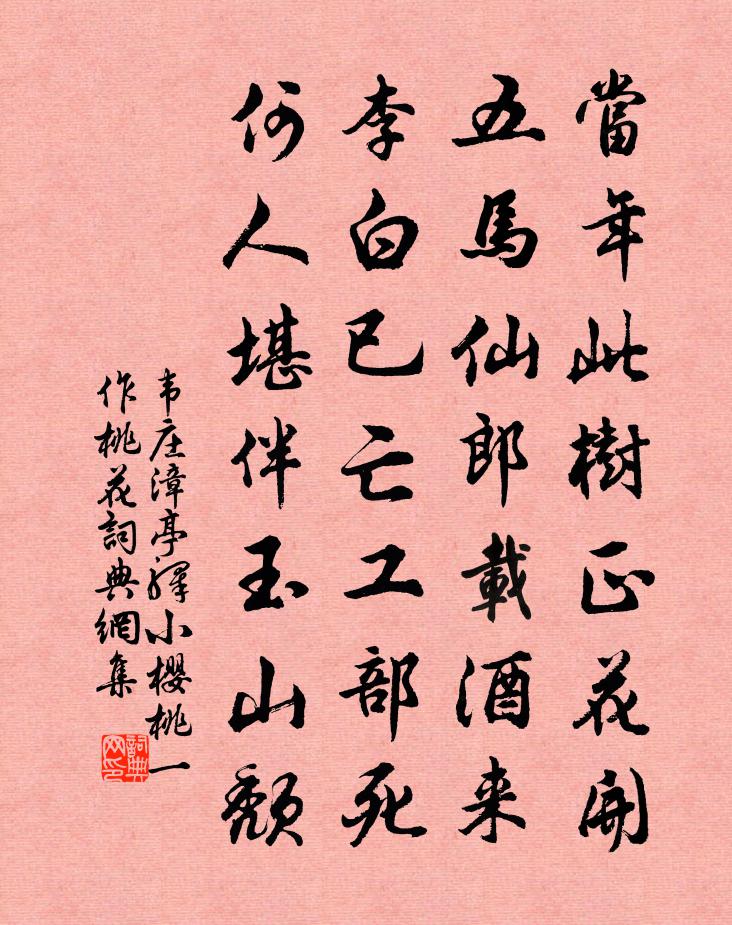 當年此樹正花開
五馬仙郎載酒来
李白已亡工部死
何人堪伴玉山颓
韦庄漳亭驛小櫻桃一
作桃花詞典網集
詞典网印